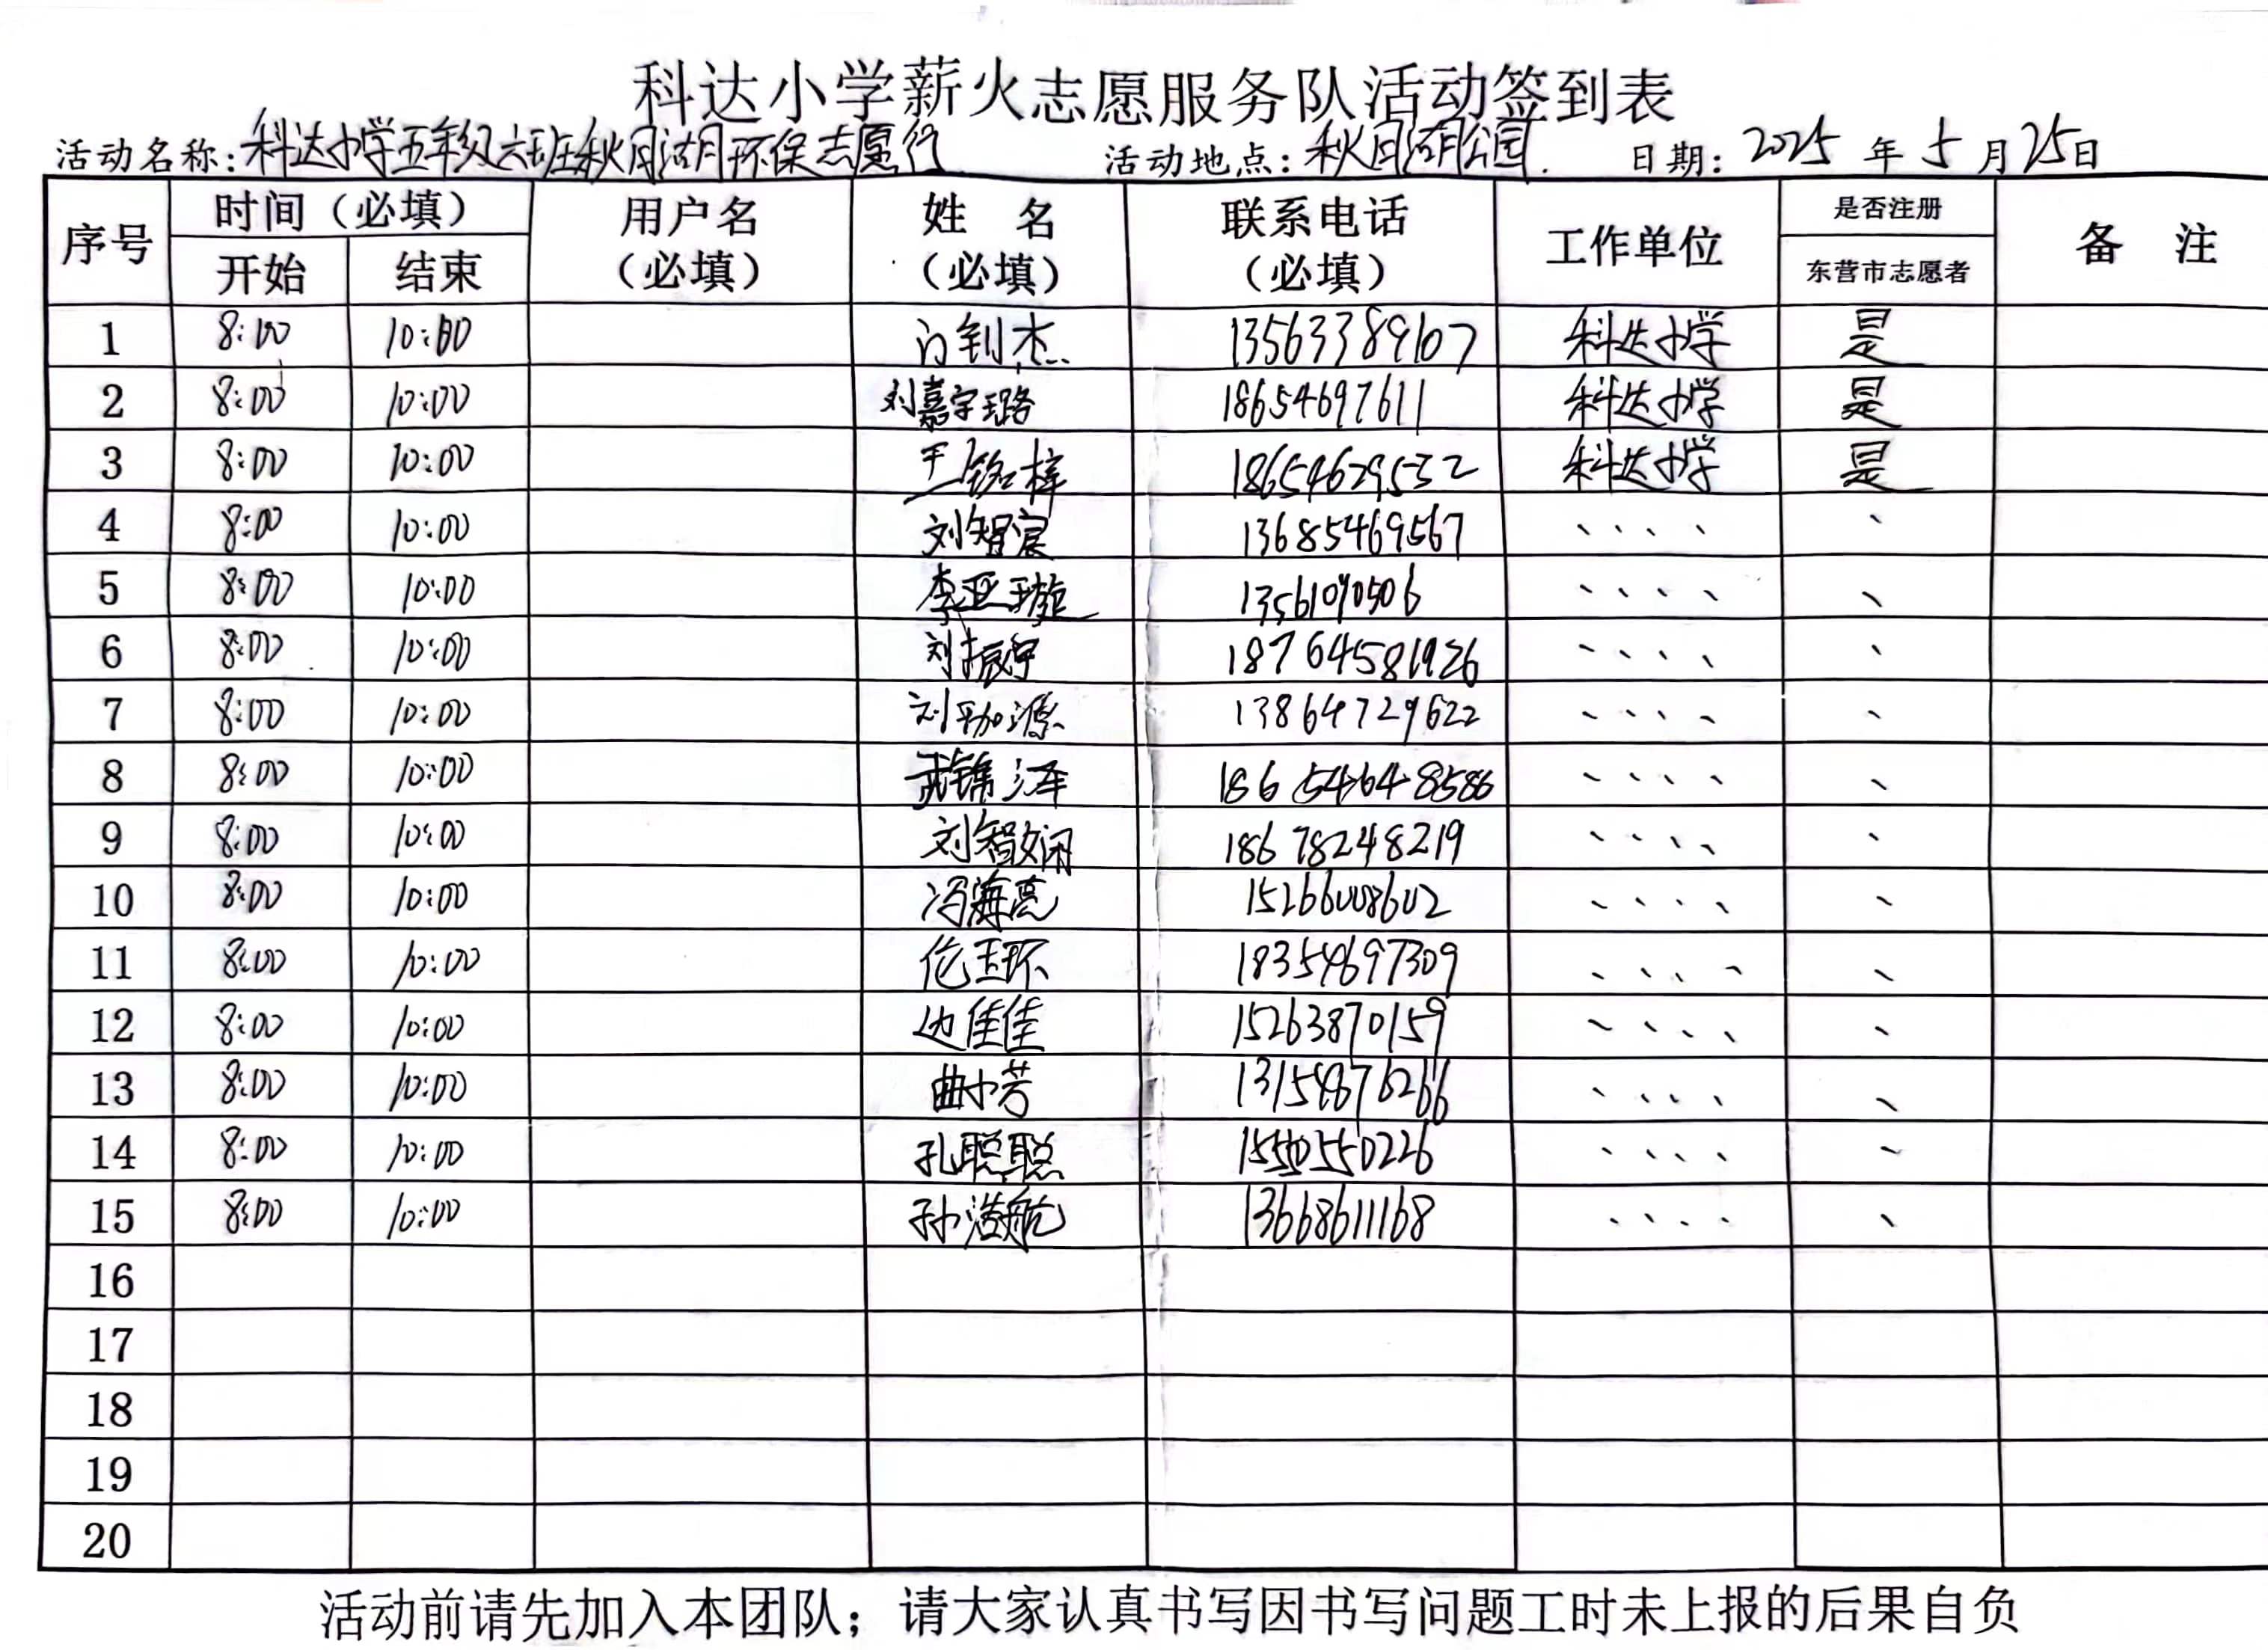 科达小学薪火志愿服务队活动签到表
活动名称:科达小学五年级六班秋月湖环保志愿行 活动地点:秋月湖公园. 日期:2025年5月25日
序号 时间（必填） 用户名（必填） 姓 名（必填） 联系电话（必填） 工作单位 是否注册 备 注
开始 结束 东营市志愿者
1 8:00 10:00 门钊杰 13563389107 科达小学 是
2 8:00 10:00 刘嘉宇璐 18654697611 科达小学 是
3 8:00 10:00 王铭梓 18654629532 科达小学 是
4 8:00 10:00 刘智宸 13685469567 、、、、 、
5 8:00 10:00 李亚璇 、、、、 、
6 8:00 10:00 刘振宇 18764581926 、、、、 、
7 8:00 10:00 刘珈源 13864729622 、、、、 、
8 8:00 10:00 武锦泽 18654648586 、、、、 、
9 8:00 10:00 刘智娴 18678248219 、、、、 、
10 8:00 10:00 冯海亮 15266008602 、、、、 、
11 8:00 10:00 伦玉环 18354697309 、、、、 、
12 8:00 10:00 边佳佳 15263870159 、、、、 、
13 8:00 10:00 曲小芳 、、、、 、
14 8:00 10:00 孔聪聪 15550550226 、、、、 、
15 8:00 10:00 孙浩航 13668611168 、、、、 、
16
17
18
19
20
活动前请先加入本团队；请大家认真书写因书写问题工时未上报的后果自负